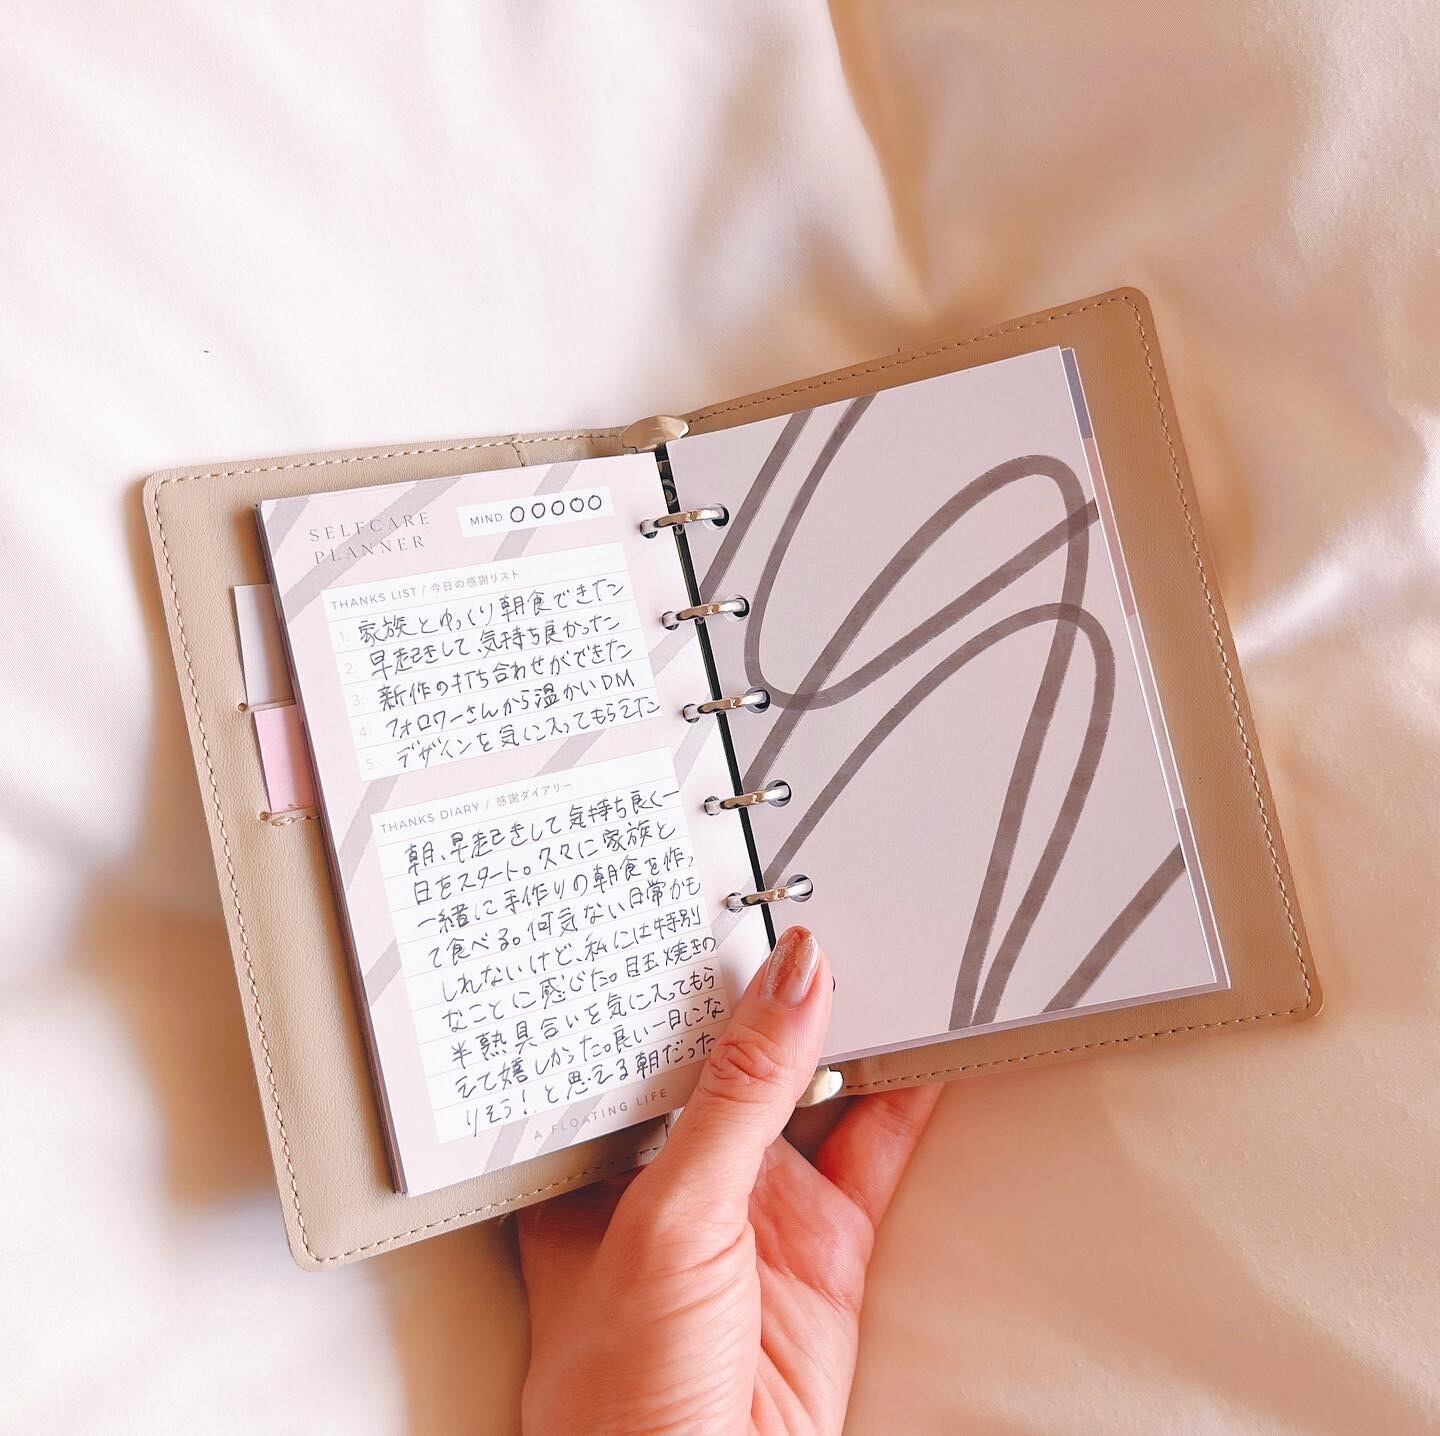 SELFCARE
PLANNER
MIND
THANKS LIST / 今日の感謝リスト
1. 家族とゆっくり朝食できた
2. 早起きして、気持ち良かった
3. 新作の打ち合わせができた
4. フォロワーさんから温かいDM
5. デザインを気に入ってもらえた
THANKS DIARY / 感謝ダイアリー
朝、早起きして気持ち良く一
日をスタート。久々に家族と
一緒に手作りの朝食を作っ
て食べる。何気ない日常かも
しれないけど、私には特別
なことに感じた。目玉焼きの
半熟具合いを気に入ってもら
えて嬉しかった。良い一日にな
りそう!と思える朝だった
A FLOATING LIFE